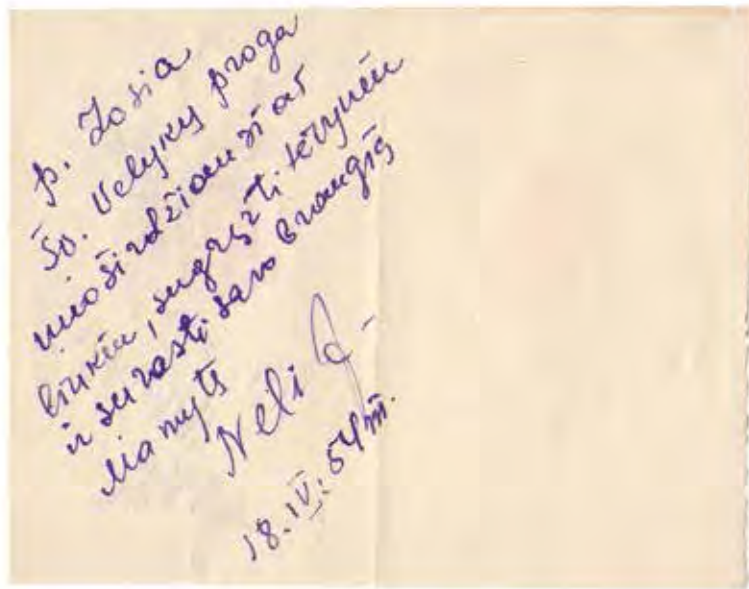 p. Zosia
Šv. Velykų proga
nuoširdžiausiai
linkiu, sugrįžti tėvynėn
ir surasti savo brangią
Mamytę
Neli
18.IV.54 m.